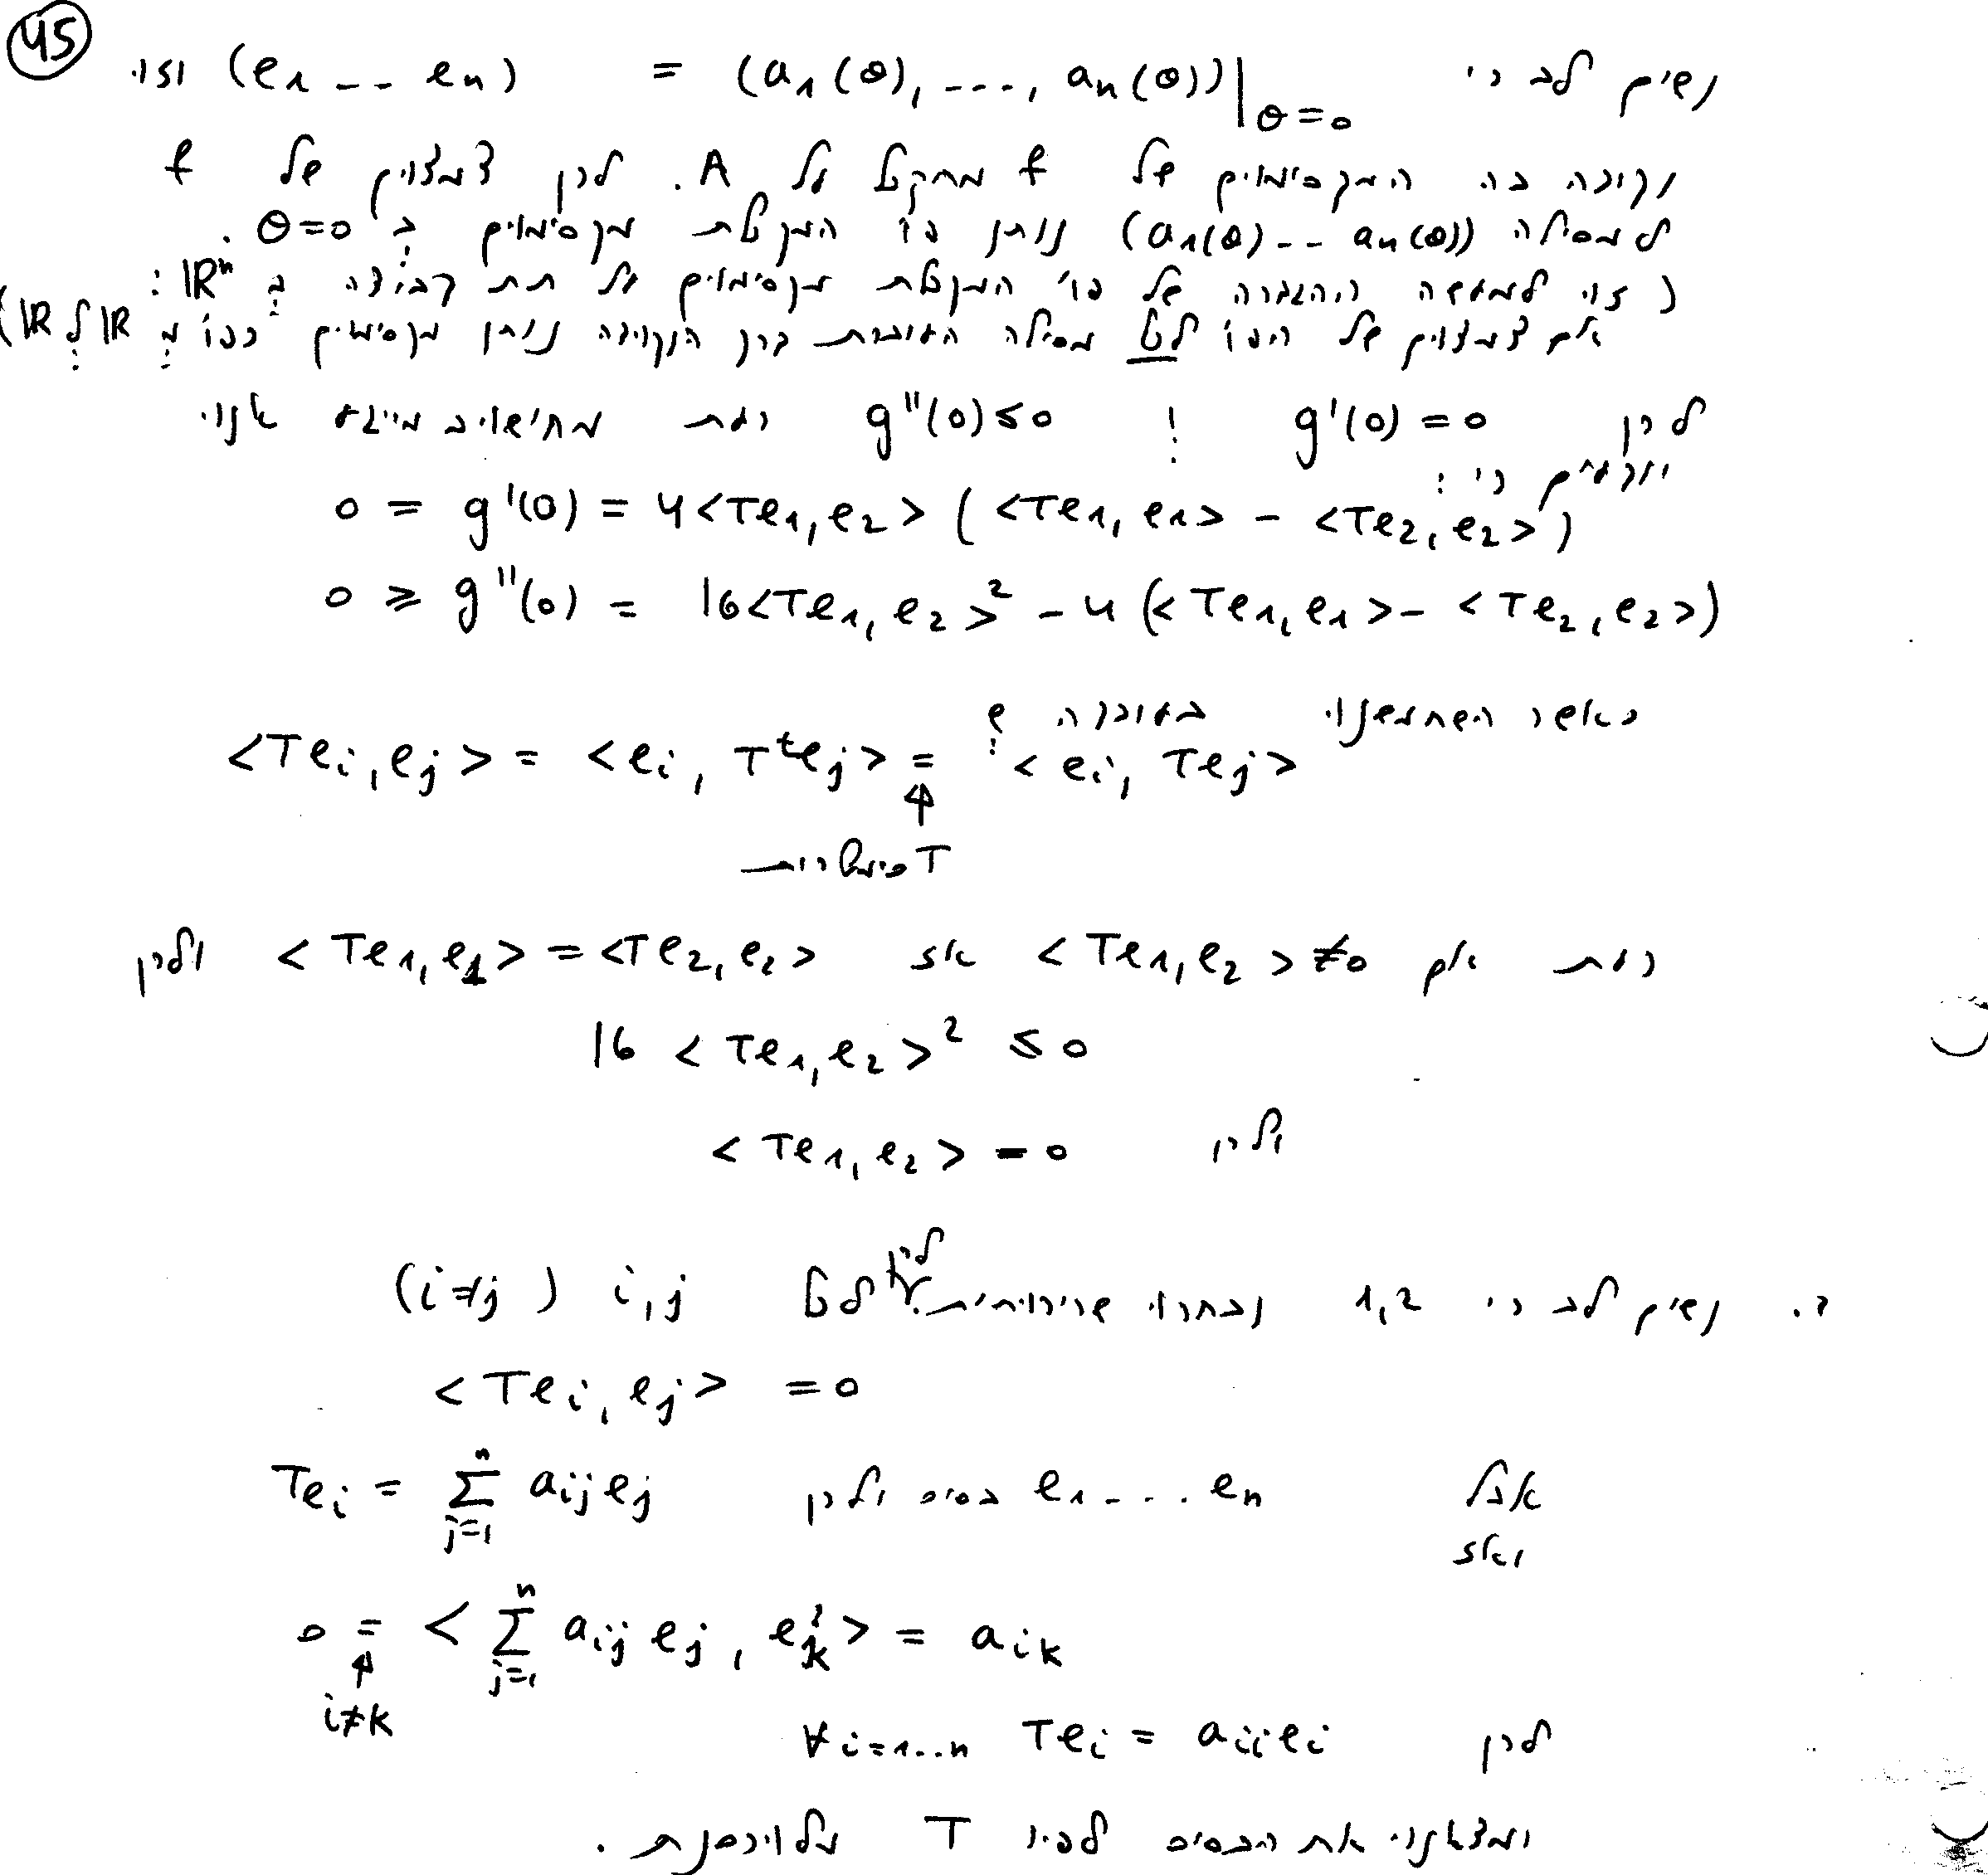 45
נשים לב כי (e₁ -- eₙ) = (a₁(θ), ---, aₙ(θ))|_{θ=0} וזוי
נקודה בה המקסימום של f מתקבל על A. לכן צמצום של f
למסילה (a₁(θ) -- aₙ(θ)) נותן פו' המקבלת מקסימום ב θ=0.
(זוי למעשה ההגדרה של פו' המקבלת מקסימום על תת קבוצה ב ℝⁿ:
אם צמצום של הפו' לכל מסילה העוברת ברך הנקודה נותן מקסימום כפו' מ ℝ ל ℝ)
לכן g'(0) = 0 ו g''(0) ≤ 0 כעת מחישוב מייגע אנוי
יודעים כי:
0 = g'(0) = 4<Te₁, e₂> (<Te₁, e₁> - <Te₂, e₂>)
0 ≥ g''(0) = 16<Te₁, e₂>² - 4 (<Te₁, e₁> - <Te₂, e₂>)
כאשר השתמשנוי בעובדה ש
<Teᵢ, eⱼ> = <eᵢ, Tᵗeⱼ> = <eᵢ, Teⱼ>
↑
T סימטרית
כעת אם <Te₁, e₂> ≠ 0 אז <Te₁, e₁> = <Te₂, e₂> ולכן
16 <Te₁, e₂>² ≤ 0
ולכן <Te₁, e₂> = 0
ד. נשים לב כי 1,2 נבחרוי שרירותית. לכן לכל i,j (i≠j)
<Teᵢ, eⱼ> = 0
אבל e₁ --- eₙ בסיס ולכן Teᵢ = Σ_{j=1}^{n} aᵢⱼeⱼ
ואז
0 = <Σ_{j=1}^{n} aᵢⱼ eⱼ, eₖ> = aᵢₖ
↑
i≠k
לכן ∀ i=1..n Teᵢ = aᵢᵢeᵢ
ומצאנוי את הבסיס לפיו T מלוכסנת.